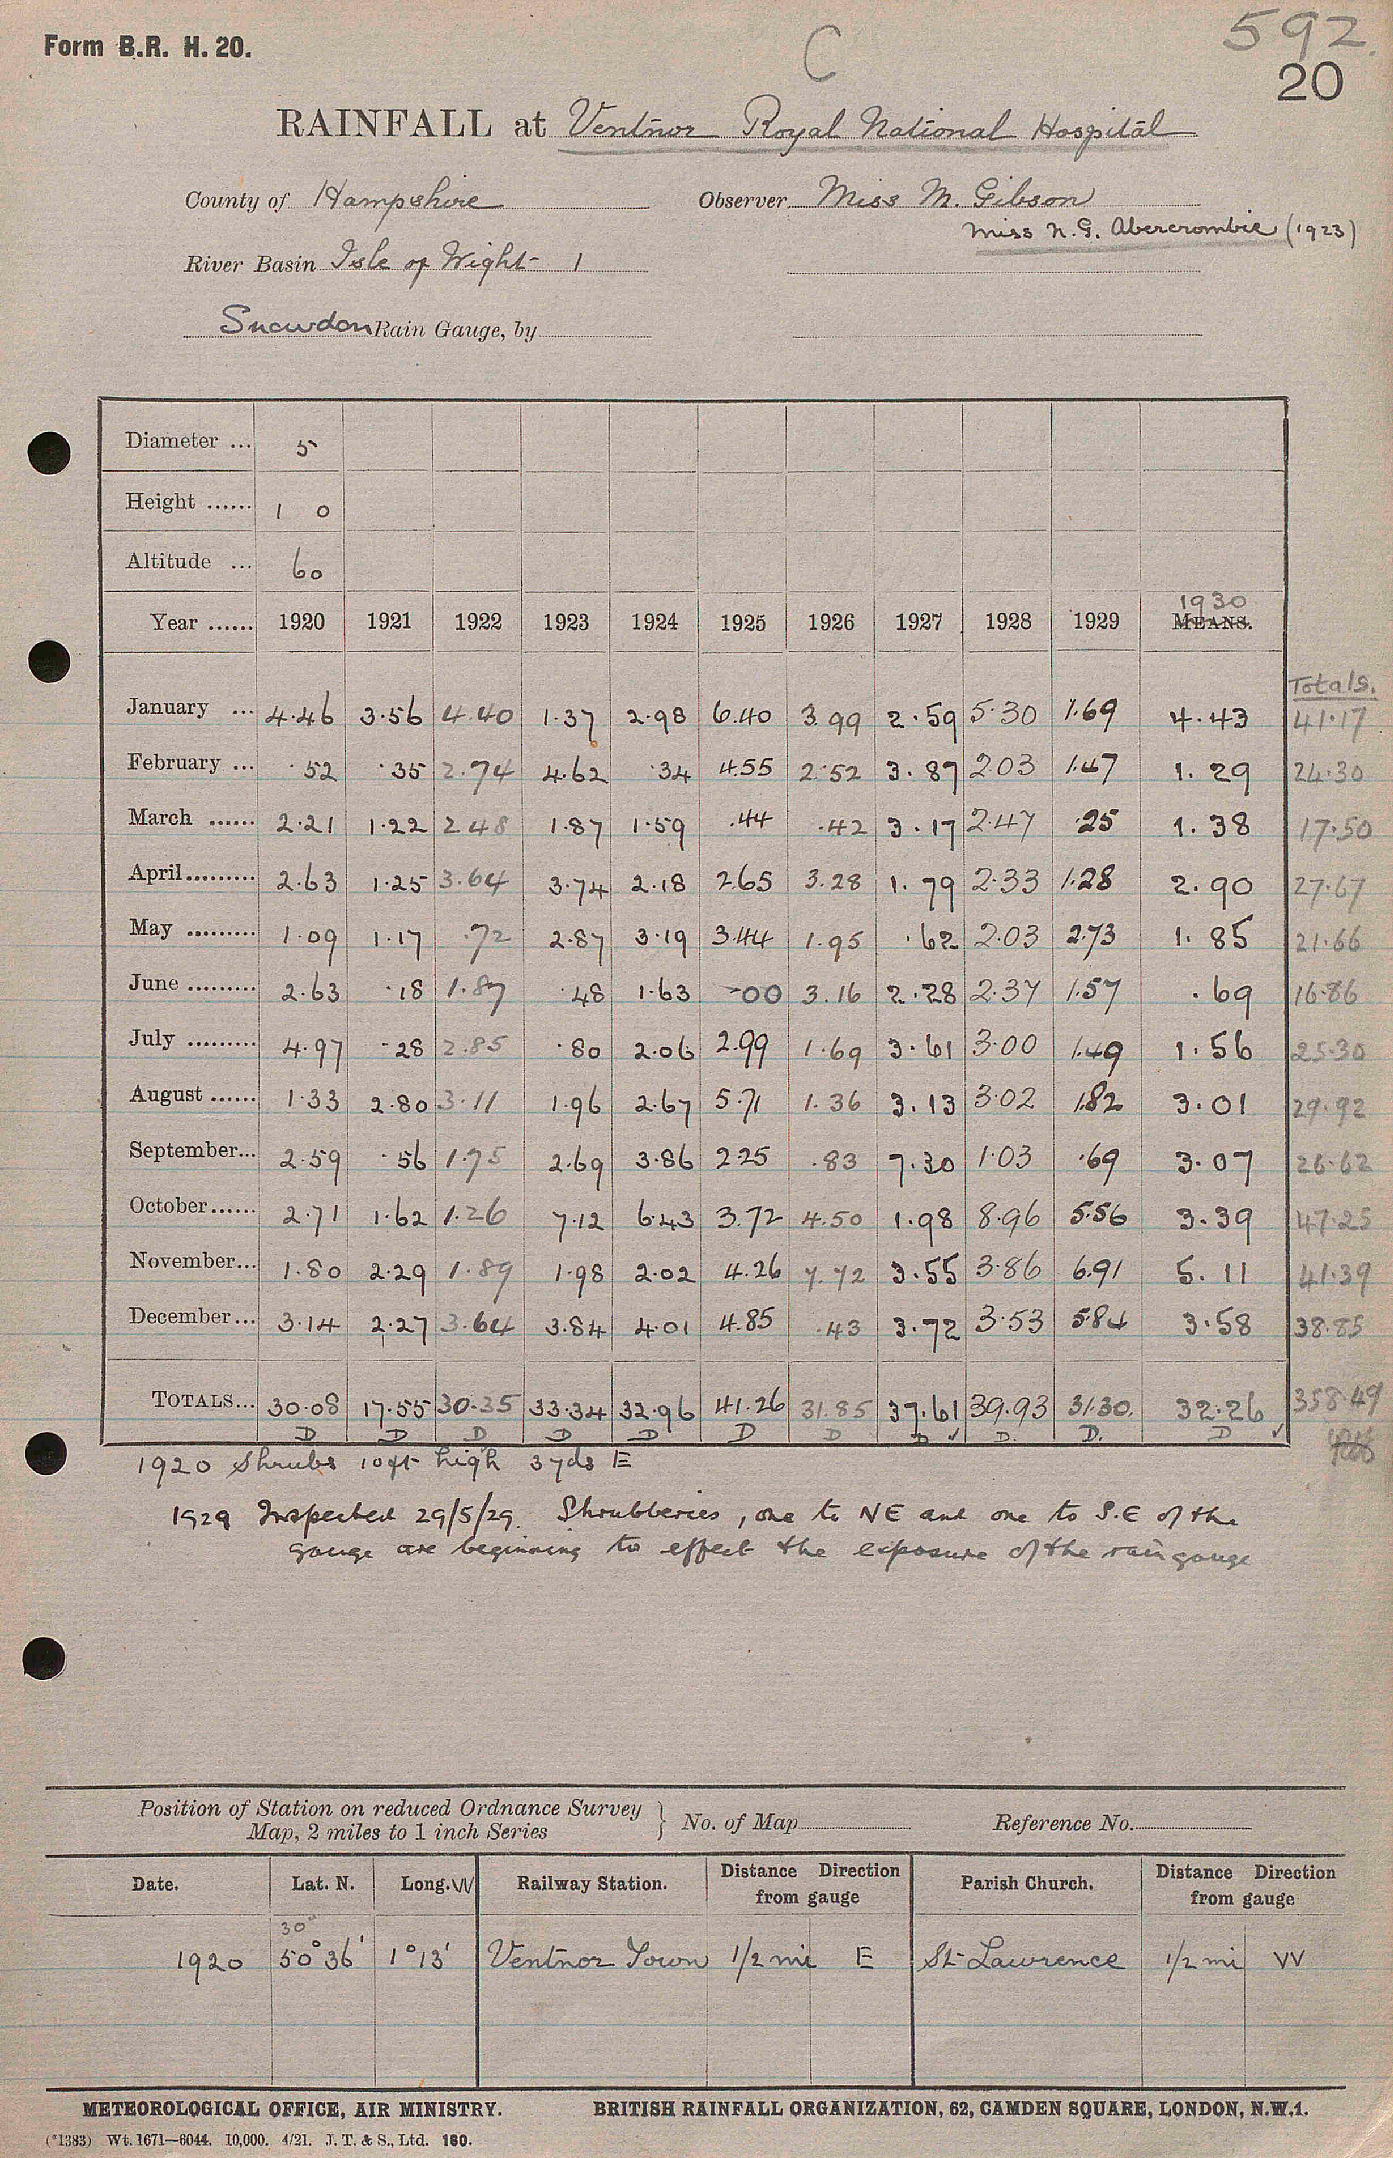 Form B.R. H. 20.
C
592.
20
RAINFALL at Ventnor Royal National Hospital
County of Hampshire Observer Miss M. Gibson
Miss N. G. Abercrombie (1923)
River Basin Isle of Wight 1
Snowdon Rain Gauge, by
Diameter ... 5
Height ...... 1 0
Altitude ... 60
Year ...... 1920 1921 1922 1923 1924 1925 1926 1927 1928 1929 1930 MEANS.
Totals.
January ... 4.46 3.56 4.40 1.37 2.98 6.40 3.99 2.59 5.30 1.69 4.43 41.17
February ... .52 .35 2.74 4.62 .34 4.55 2.52 3.87 2.03 1.47 1.29 24.30
March ...... 2.21 1.22 2.48 1.87 1.59 .44 .42 3.17 2.47 .25 1.38 17.50
April ......... 2.63 1.25 3.64 3.74 2.18 2.65 3.28 1.79 2.33 1.28 2.90 27.67
May ......... 1.09 1.17 .72 2.87 3.19 3.44 1.95 .62 2.03 2.73 1.85 21.66
June ......... 2.63 .18 1.87 .48 1.63 .00 3.16 2.28 2.37 1.57 .69 16.86
July ......... 4.97 .28 2.85 .80 2.06 2.99 1.69 3.61 3.00 1.49 1.56 25.30
August ...... 1.33 2.80 3.11 1.96 2.67 5.71 1.36 3.13 3.02 1.82 3.01 29.92
September... 2.59 .56 1.75 2.69 3.86 2.25 .83 7.30 1.03 .69 3.07 26.62
October...... 2.71 1.62 1.26 7.12 6.43 3.72 4.50 1.98 8.96 5.56 3.39 47.25
November... 1.80 2.29 1.89 1.98 2.02 4.26 7.72 3.55 3.86 6.91 5.11 41.39
December... 3.14 2.27 3.64 3.84 4.01 4.85 .43 3.72 3.53 5.84 3.58 38.85
TOTALS... 30.08 17.55 30.35 33.34 32.96 41.26 31.85 37.61 39.93 31.30. 32.26 358.49
D D D D D D D D ✓ D. D. D ✓
1920 Shrubs 10ft high 3yds E
1929 Inspected 29/5/29. Shrubberies, one to NE and one to S.E of the
gauge are beginning to effect the exposure of the rain gauge
Position of Station on reduced Ordnance Survey
Map, 2 miles to 1 inch Series } No. of Map Reference No.
Date. Lat. N. Long. W Railway Station. Distance Direction from gauge Parish Church. Distance Direction from gauge
30"
1920 50° 36' 1° 13' Ventnor Town 1/2 mi E St Lawrence 1/2 mi W
METEOROLOGICAL OFFICE, AIR MINISTRY. BRITISH RAINFALL ORGANIZATION, 62, CAMDEN SQUARE, LONDON, N.W.1.
(*1383) Wt. 1671—6044. 10,000. 4/21. J. T. & S., Ltd. 160.